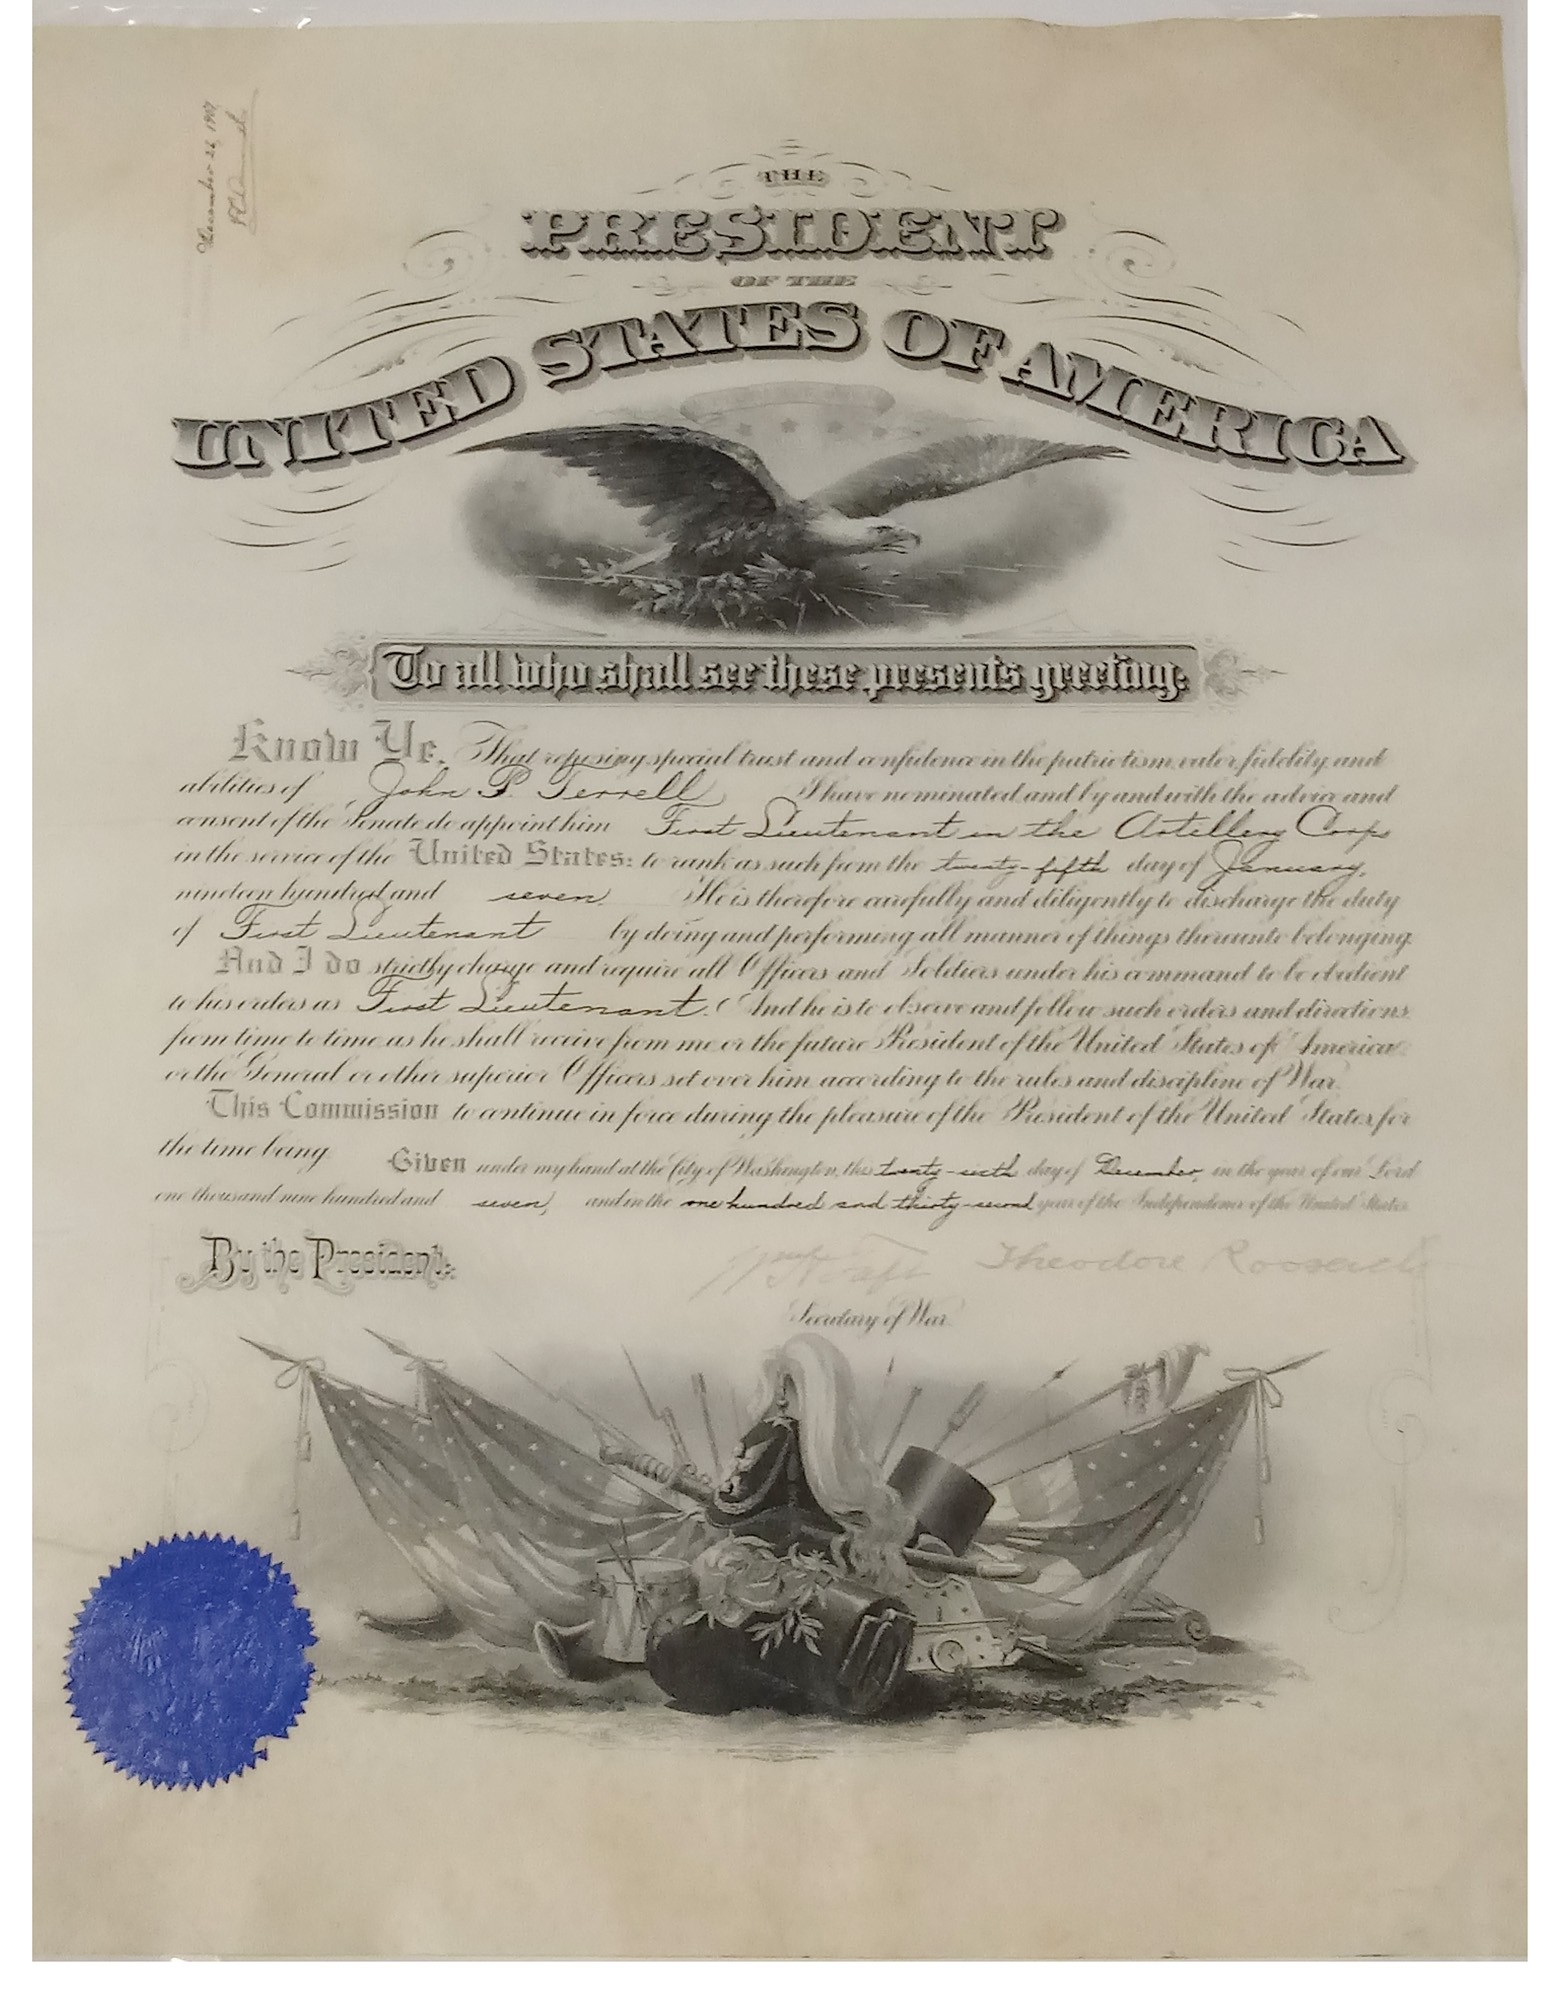 December 26, 1907
THE
PRESIDENT
OF THE
UNITED STATES OF AMERICA
To all who shall see these presents greeting:
Know Ye, That reposing special trust and confidence in the patriotism, valor, fidelity, and
abilities of John P. Terrell I have nominated, and by and with the advice and
consent of the Senate do appoint him First Lieutenant in the Artillery Corps
in the service of the United States: to rank as such from the twenty-fifth day of January,
nineteen hundred and seven. He is therefore carefully and diligently to discharge the duty
of First Lieutenant by doing and performing all manner of things thereunto belonging.
And I do strictly charge and require all Officers and Soldiers under his command to be obedient
to his orders as First Lieutenant. And he is to observe and follow such orders and directions
from time to time as he shall receive from me or the future President of the United States of America
or the General or other superior Officers set over him according to the rules and discipline of War.
This Commission to continue in force during the pleasure of the President of the United States, for
the time being.
Given under my hand at the City of Washington, this twenty-sixth day of December, in the year of our Lord
one thousand nine hundred and seven, and in the one hundred and thirty-second year of the Independence of the United States.
By the President:
Wm H Taft Theodore Roosevelt
Secretary of War.